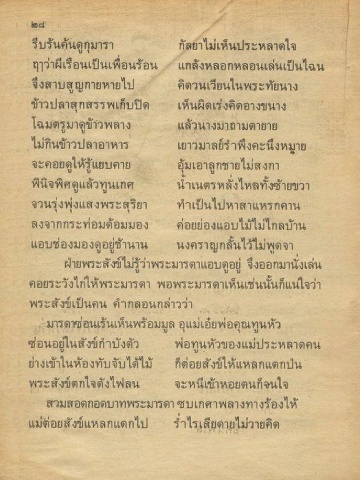 ๒๘
รีบรันค้นดูกุมารา กัลยาไม่เห็นประหลาดใจ
ฤาว่าผีเรือนเป็นเพื่อนร้อน แกล้งหลอกหลอนเล่นเป็นไฉน
จึ่งสาบสูญกายหายไป คิดวนเวียนในพระทัยนาง
ข้าวปลาสุกสรรพเก็บปิด เห็นผิดเร่งคิดอางขนาง
โฉมตรูมาดูข้าวพลาง แล้วนางมาถามตายาย
ไม่กินข้าวปลาอาหาร เยาวมาลย์รำพึงคะนึงหมาย
จะคอยดูให้รู้แยบคาย อุ้มเอาลูกชายไม่สงกา
พินิจพิศดูแล้วทูนเกศ น้ำเนตรหลั่งไหลทั้งซ้ายขวา
จวนรุ่งพุ่งแสงพระสุริยา ทำเป็นไปหาสาแหรกคาน
ลงจากกระท่อมด้อมมอง ค่อยย่องแอบไม้ไม่ไกลบ้าน
แอบช่องมองดูอยู่ช้านาน นงคราญกลั้นไว้ไม่พูดจา
ฝ่ายพระสังข์ไม่รู้ว่าพระมารดาแอบดูอยู่ จึงออกมานั่งเล่น
คอยระวังไก่ให้พระมารดา พอพระมารดาเห็นเช่นนั้นก็แน่ใจว่า
พระสังข์เป็นคน คำกลอนกล่าวว่า
มารดาซ่อนเร้นเห็นพร้อมมูล อุแม่เอ๋ยพ่อคุณทูนหัว
ซ่อนอยู่ในสังข์กำบังตัว พ่อทูนหัวของแม่ประหลาดคน
ย่างเข้าในห้องทับจับได้ไม้ ก็ต่อยสังข์ให้แหลกแตกป่น
พระสังข์ตกใจดังไฟลน จะหนีเข้าหอยตนก็จนใจ
สวมสอดกอดบาทพระมารดา ซบเกศาพลางทางร้องไห้
แม่ต่อยสังข์แหลกแตกไป ร่ำไรเสียดายไม่วายคิด